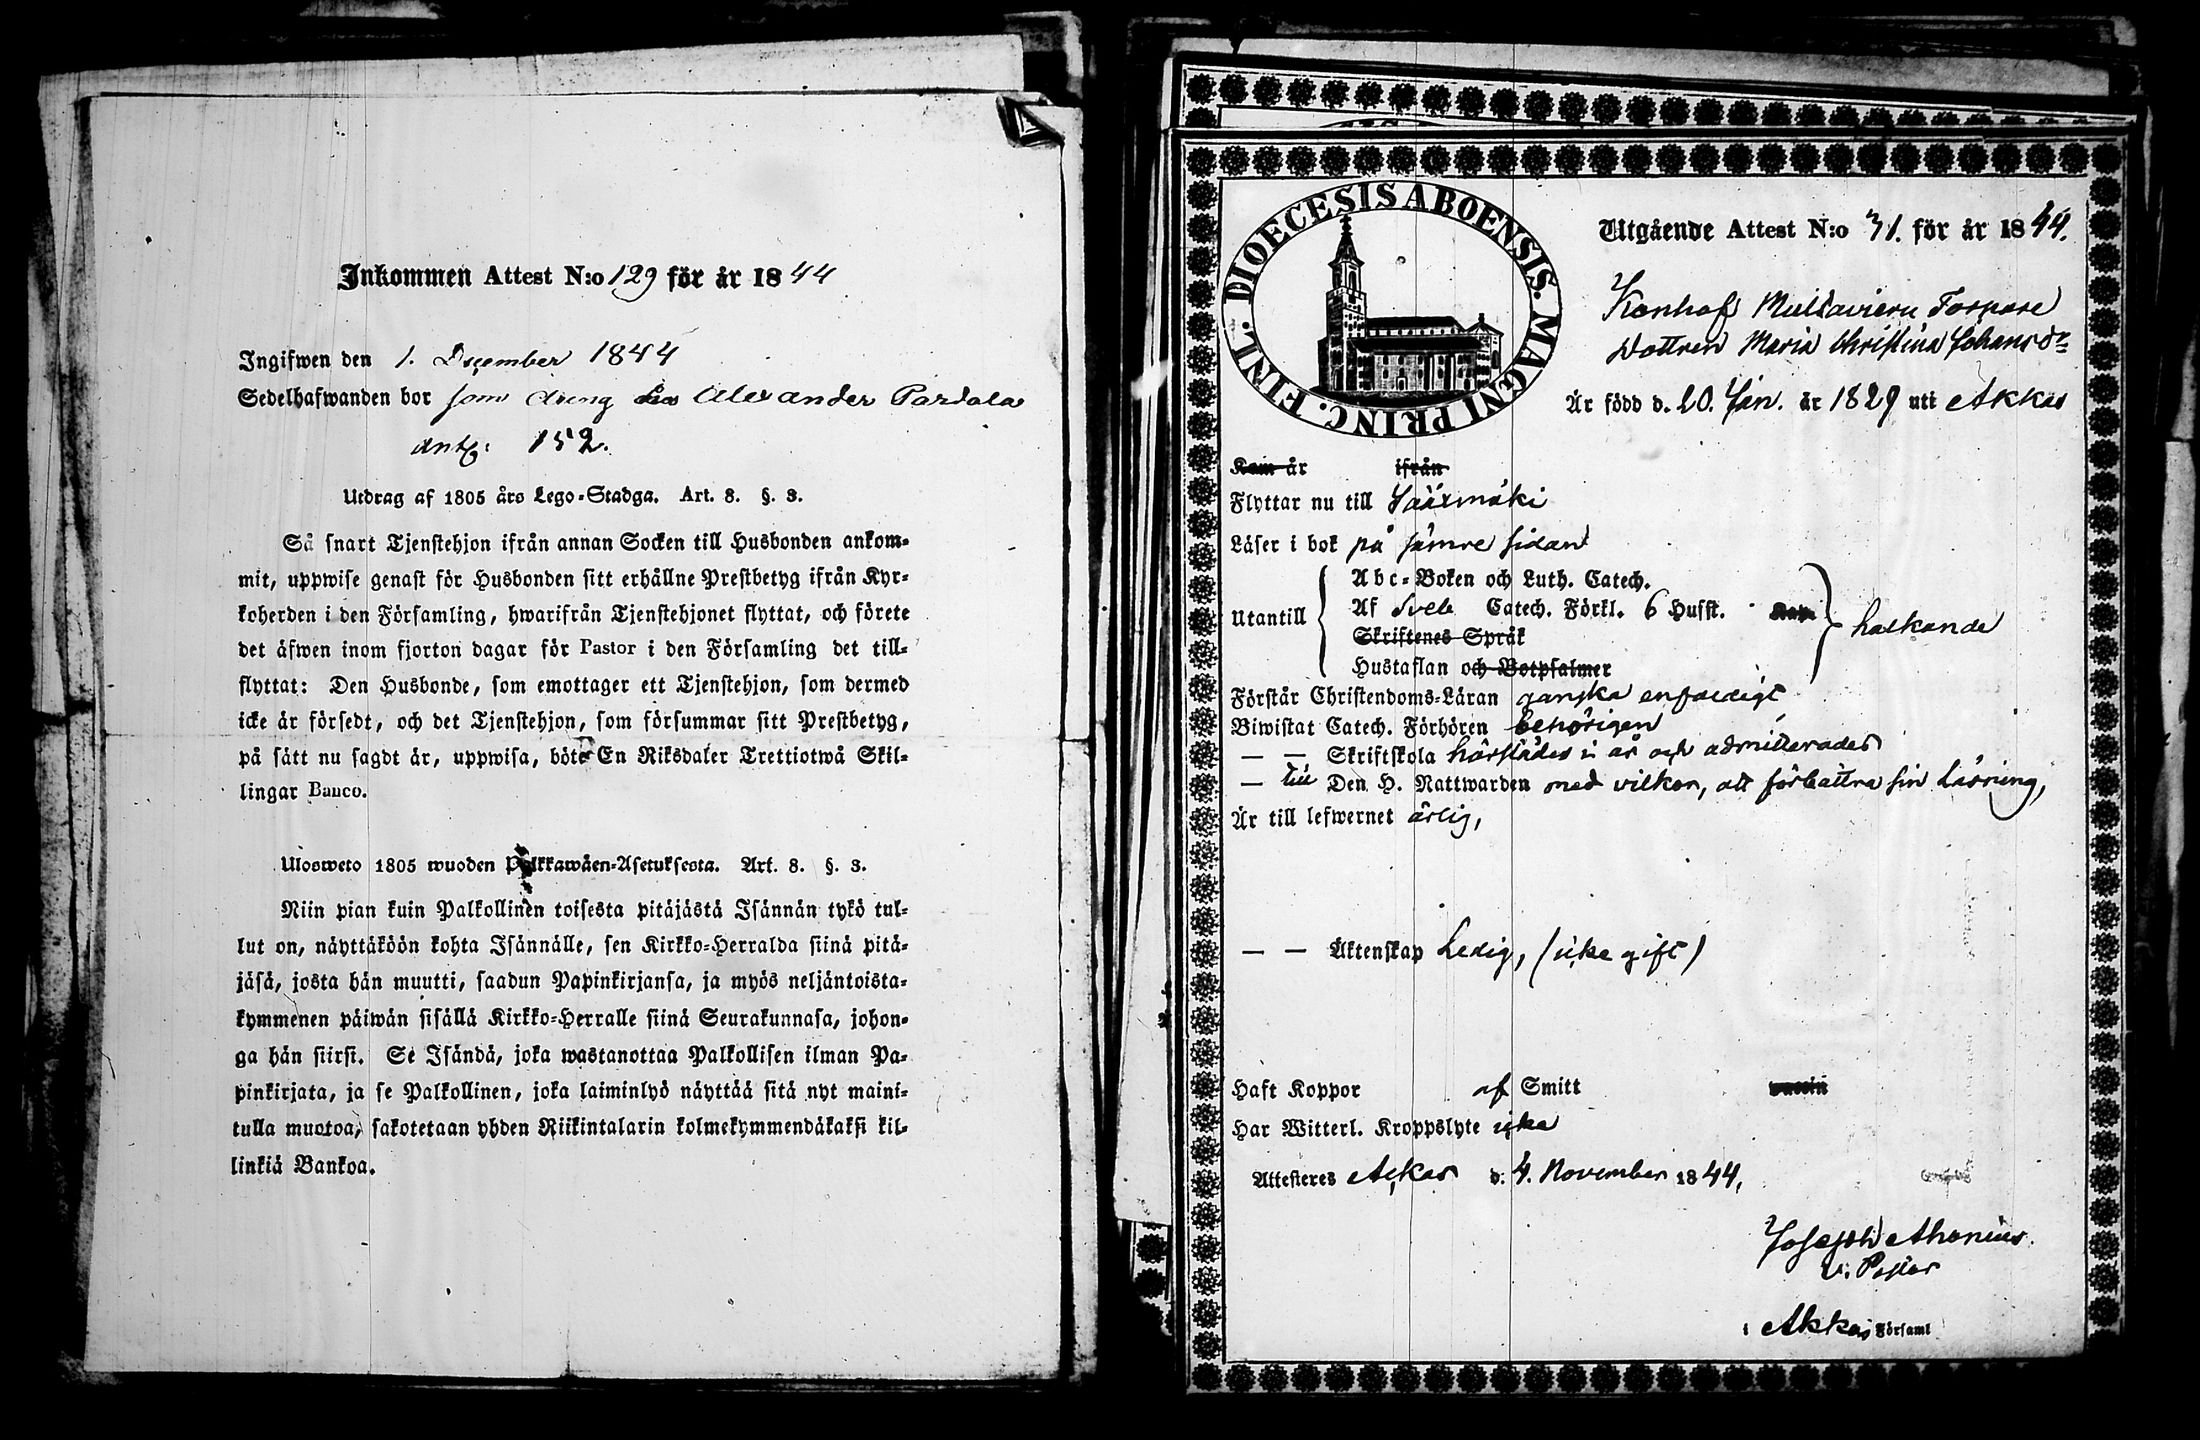 Inkommen Attest N:o 129 för år 1844
Ingifwen den 1. December 1844
Sedelhafwanden bor som dräng hos Alexander Pardala
antg: 152.
Utdrag af 1805 års Lego-Stadga. Art. 8. §. 3.
Så snart Tjenstehjon ifrån annan Socken till Husbonden ankom-
mit, uppwise genast för Husbonden sitt erhållne Prestbetyg ifrån Kyr-
koherden i den Församling, hwarifrån Tjenstehjonet flyttat, och förete
det äfwen inom fjorton dagar för Pastor i den Församling det till-
flyttat: Den Husbonde, som emottager ett Tjenstehjon, som dermed
icke är försedt, och det Tjenstehjon, som försummar sitt Prestbetyg,
på sätt nu sagdt är, uppwisa, böte En Riksdaler Trettiotwå Skil-
lingar Banco.
Ulosweto 1805 wuoden Palkkawäen-Asetuksesta. Art. 8. §. 3.
Niin pian kuin Palkollinen toisesta pitäjästä Isännän tykö tul-
lut on, näyttäköön kohta Isännälle, sen Kirkko-Herralda siinä pitä-
jäsä, josta hän muutti, saadun Papinkirjansa, ja myös neljäntoista-
kymmenen päiwän sisällä Kirkko-Herralle siinä Seurakunnasa, johon-
ga hän siirsi. Se Isändä, joka wastanottaa Palkollisen ilman Pa-
pinkirjata, ja se Palkollinen, joka laiminlyö näyttää sitä nyt maini-
tulla muotoa, sakotetaan yhden Riikintalarin kolmekymmendäkaksi kil-
linkiä Bankoa.
DIOECESIS ABOENSIS. MAGNI PRINC. FINL.
Utgående Attest N:o 31. för år 1844.
Konhof Multavieru Torpare
Dottren Maria Christina Johansdr
Är född d. 20. Jan. år 1829 uti Akkas
Kom år ifrån
Flyttar nu till Sääxmäki
Läser i bok på sämre sidan
Utantill
Abc-Boken och Luth. Catech.
Af Sveb Catech. Förkl. 6 Husst. Kap.
Skriftenes Språk
Hustaflan och Botpsalmer
halkande
Förstår Christendoms-Läran ganska enfaldigt
Biwistat Catech. Förhören behörigen
— — Skriftskola härstädes i år och admitterades
— till Den H. Nattwarden med vilkor, att förbättra sin Läsning,
Är till lefwernet ärlig,
— — Äktenskap Ledig, (icke gift)
Haft Koppor af Smitt vaccin
Har Witterl. Kroppslyte icke
Attesteres Ackas d. 4. November 1844,
Joseph Ahonius.
V. Pastor
i Akkas Församl